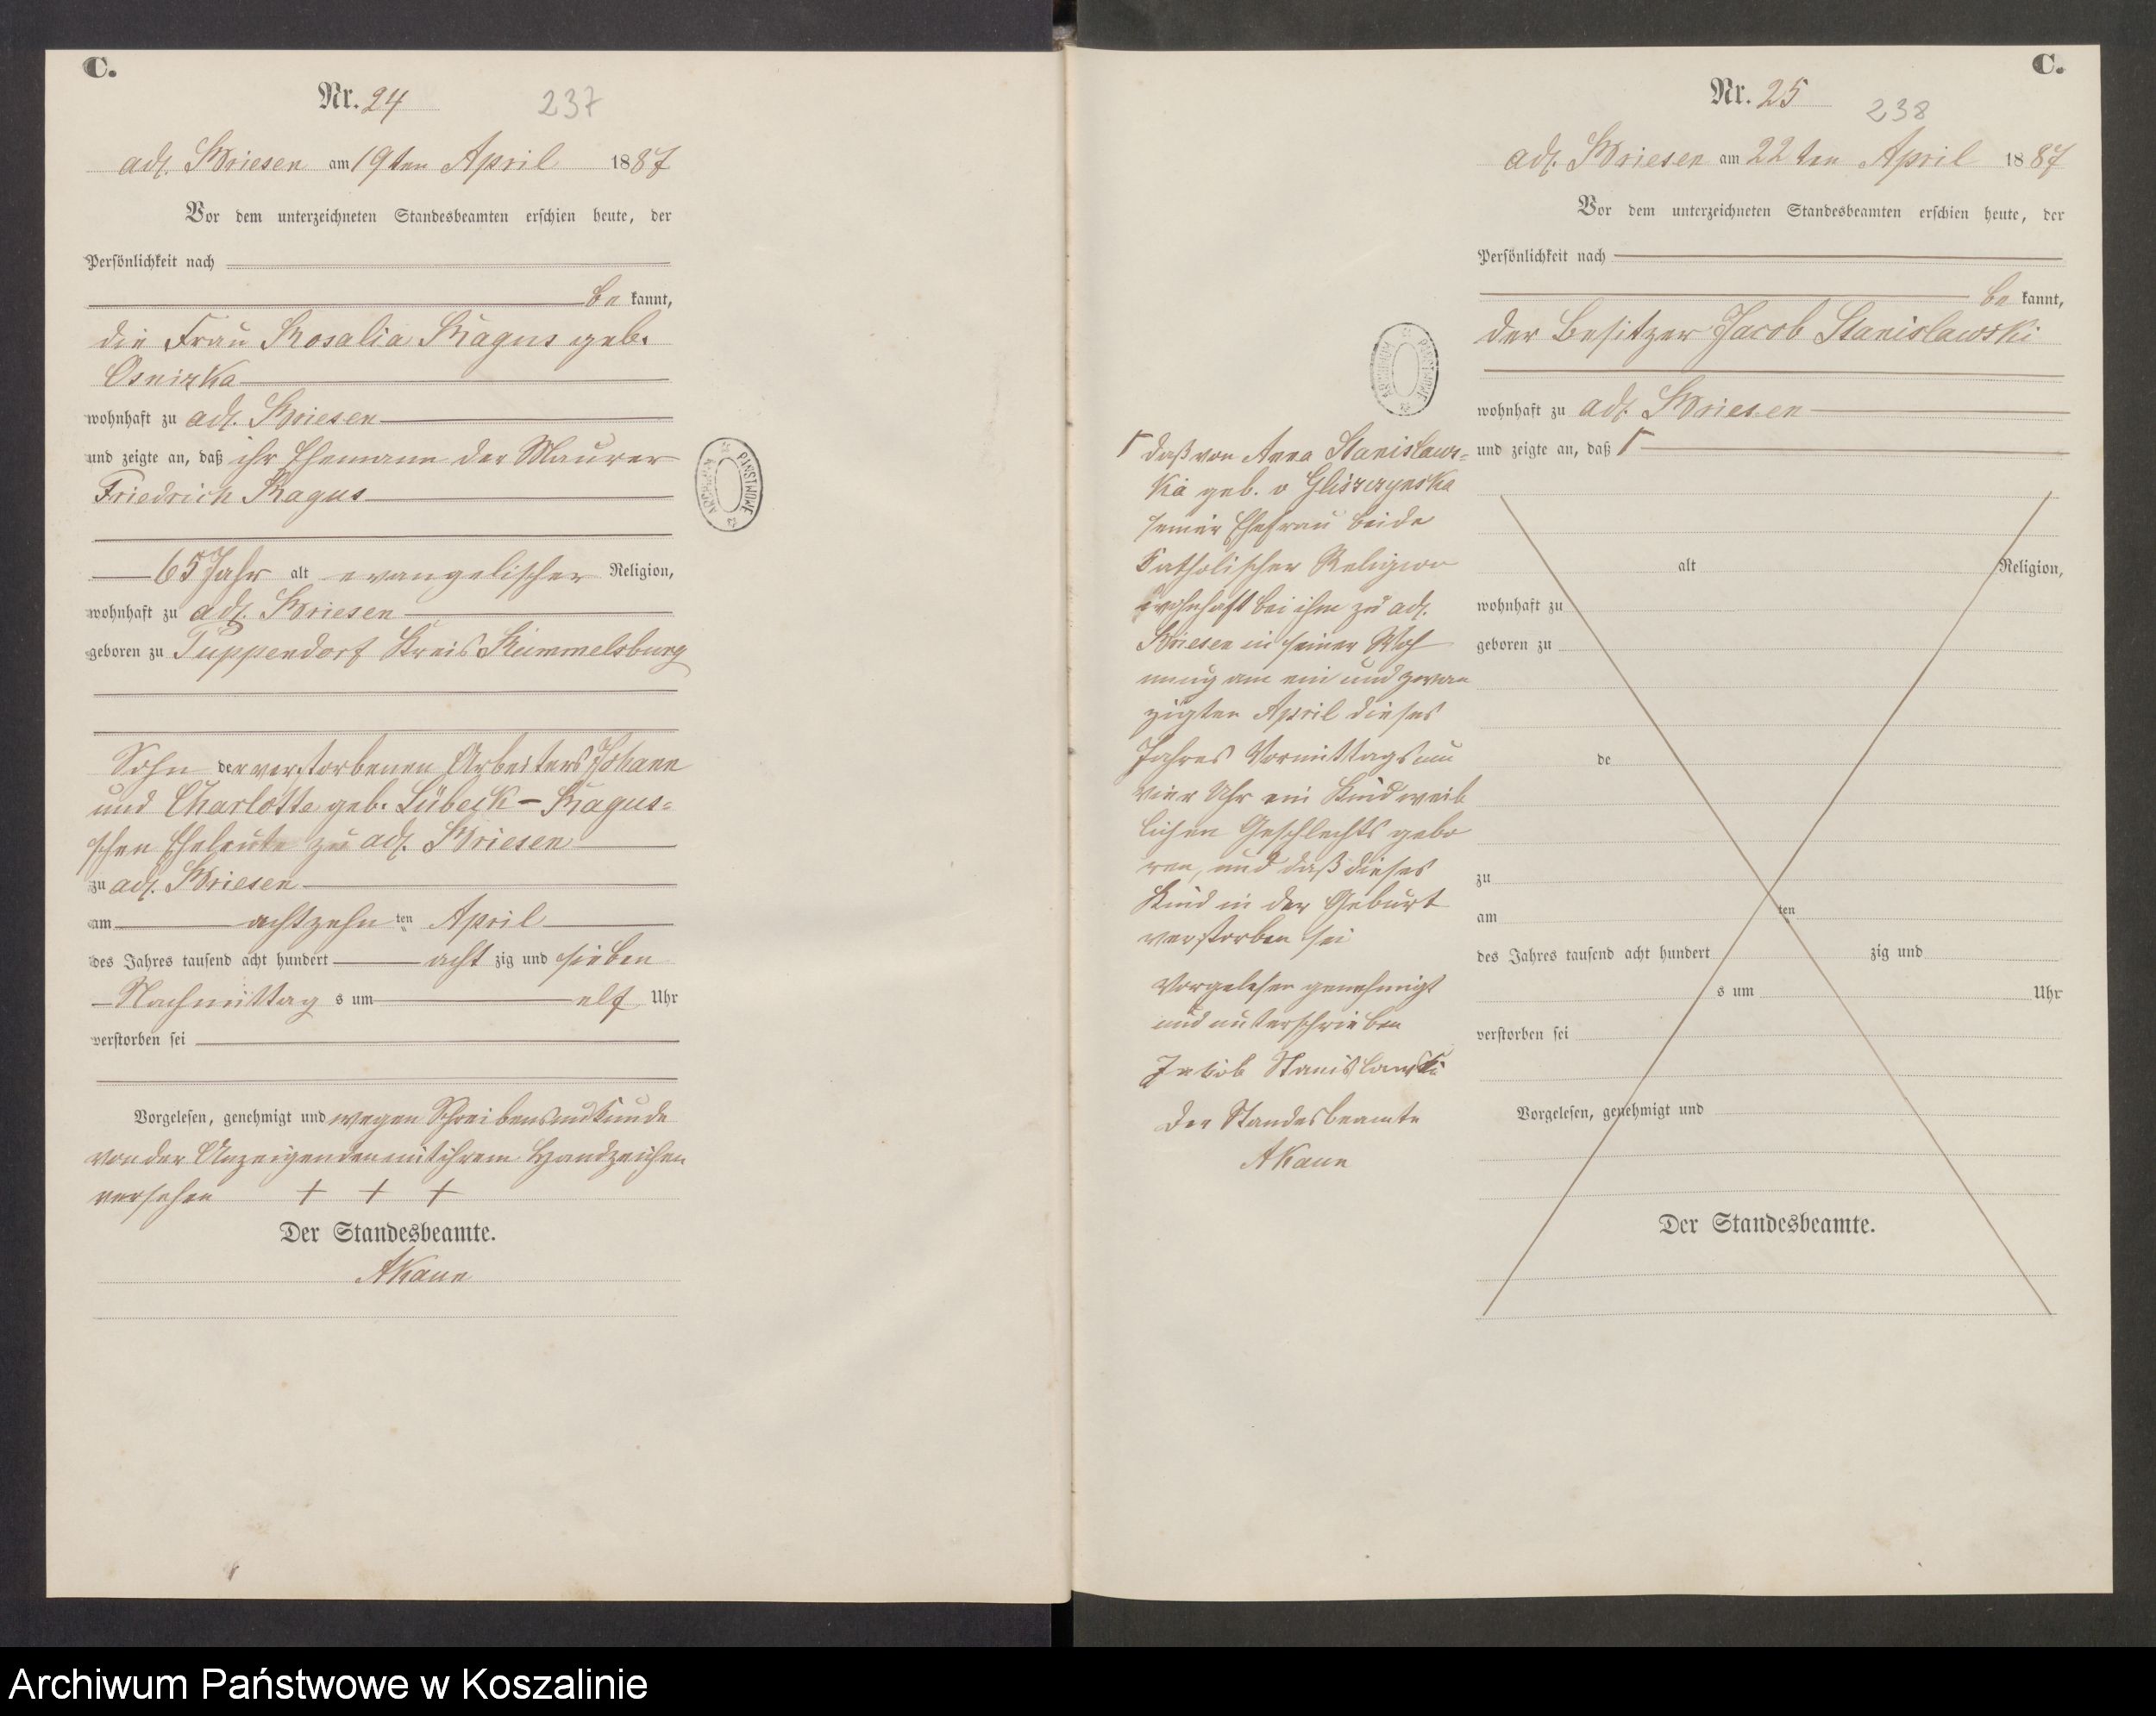 C.
Nr. 24
237
adl. Briesen am 19ten April 1887
Vor dem unterzeichneten Standesbeamten erschien heute, der
Persönlichkeit nach
be kannt,
die Frau Rosalia Ragus geb.
Osnizka
wohnhaft zu adl. Briesen
und zeigte an, daß ihr Ehemann der Maurer
Friedrich Ragus
65 Jahr alt evangelischer Religion,
wohnhaft zu adl. Briesen
geboren zu Puppendorf Kreis Rummelsburg
Sohn der verstorbenen Arbeiters Johann
und Charlotte geb. Lübeck - Ragus-
schen Eheleute zu adl. Briesen
zu adl. Briesen
am achtzehn ten April
des Jahres tausend acht hundert acht zig und sieben
Nachmittag s um elf Uhr
verstorben sei
Vorgelesen, genehmigt und wegen Schreibensunkunde
von der Anzeigenden mit ihrem Handzeichen
versehen + + +
Der Standesbeamte.
AKaun
ARCHIWUM PAŃSTWOWE
C.
Nr. 25
238
adl. Briesen am 22ten April 1887
Vor dem unterzeichneten Standesbeamten erschien heute, der
Persönlichkeit nach
be kannt,
der Besitzer Jacob Stanislawski
wohnhaft zu adl. Briesen
und zeigte an, daß Γ
alt Religion,
wohnhaft zu
geboren zu
de
zu
am ten
des Jahres tausend acht hundert zig und
s um Uhr
verstorben sei
Vorgelesen, genehmigt und
Der Standesbeamte.
ARCHIWUM PAŃSTWOWE
Γ daß von Anna Stanislaws-
ka geb. v Gliszczynska
seiner Ehefrau beide
katholischer Religion
wohnhaft bei ihm zu adl.
Briesen in seiner Woh
nung am ein und zwan
zigten April dieses
Jahres Vormittags um
vier Uhr ein Kind weib
lichen Geschlechts gebo
ren, und daß dieses
Kind in der Geburt
verstorben sei
Vorgelesen genehmigt
und unterschrieben
Jakob Stanislawski
Der Standesbeamte
AKaun
Archiwum Państwowe w Koszalinie